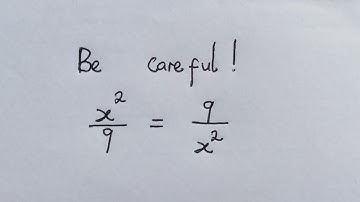 Be careful!
x²/9 = 9/x²